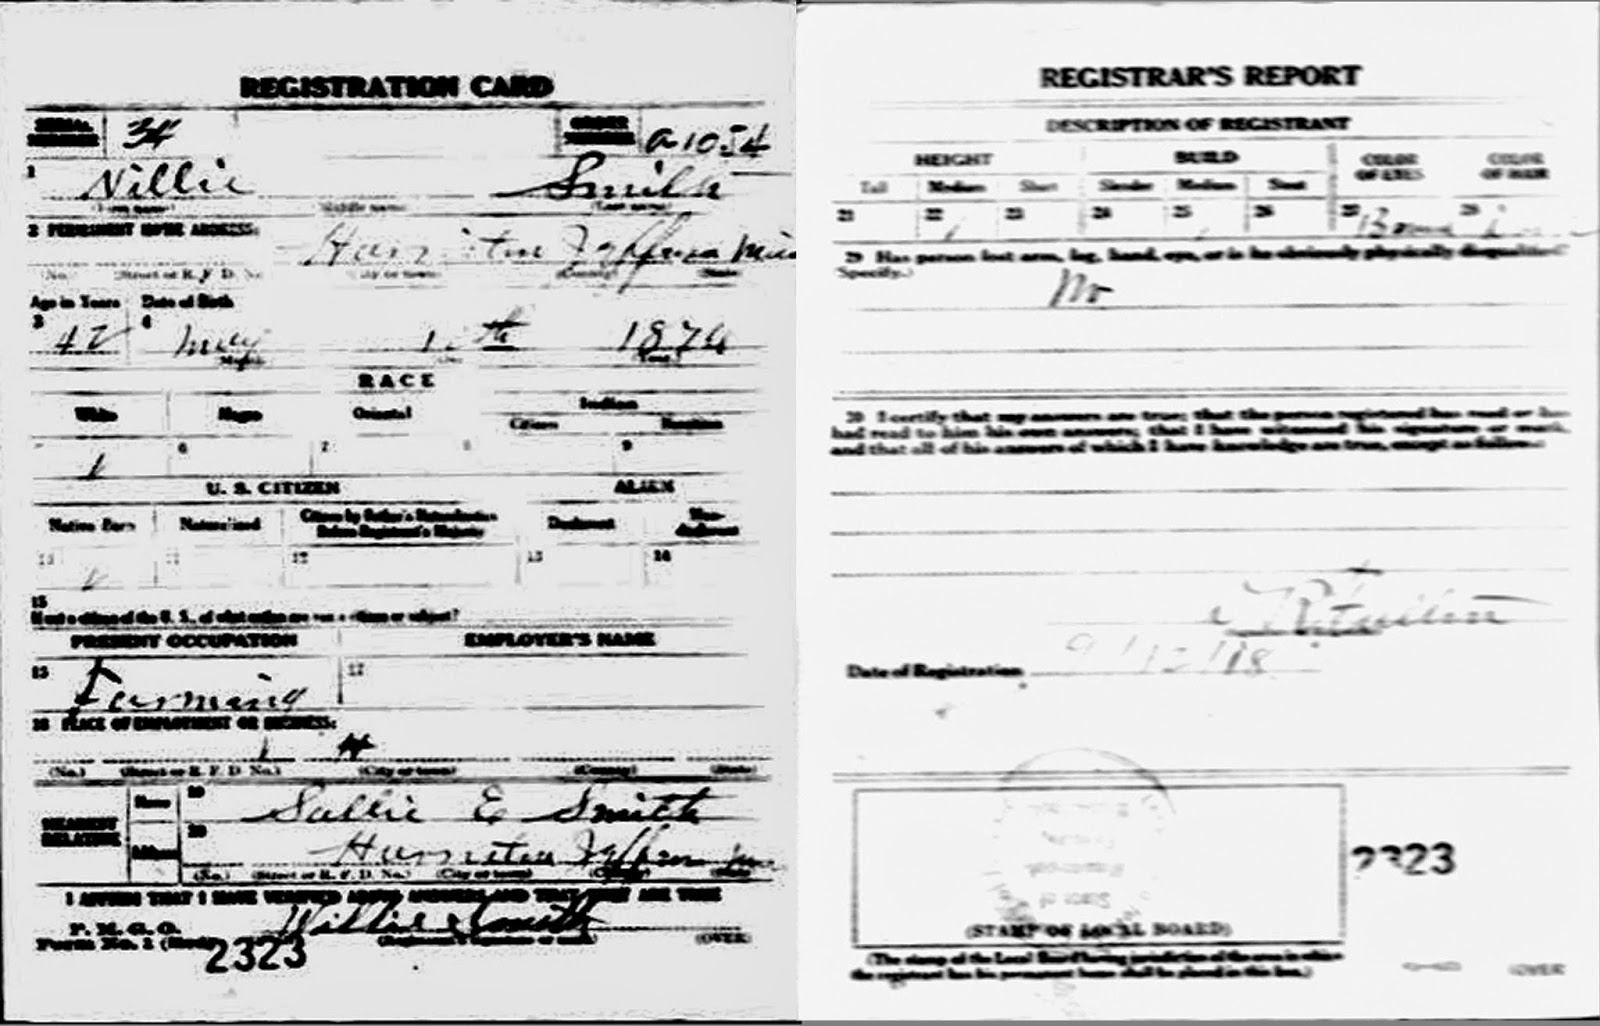 REGISTRATION CARD
SERIAL NUMBER 34 ORDER NUMBER a 1054
1 Willie Smith
(First name) (Middle name) (Last name)
2 PERMANENT HOME ADDRESS:
Harriston Jefferson Miss
(No.) (Street or R. F. D. No.) (City or town) (County) (State)
Age in Years Date of Birth
3 42 4 May th 1876
(Month) (Day) (Year)
RACE
White Negro Oriental Indian
Citizen Noncitizen
6 7 8 9
U. S. CITIZEN ALIEN
Native Born Naturalized Citizen by Father's Naturalization Before Registrant's Majority Declarant Non-declarant
10 11 12 13 14
15
If not a citizen of the U. S., of what nation are you a citizen or subject?
PRESENT OCCUPATION EMPLOYER'S NAME
Farming 17
18 PLACE OF EMPLOYMENT OR BUSINESS:
(No.) (Street or R. F. D. No.) (City or town) (County) (State)
NEAREST RELATIVE Name 19 Sallie E Smith
Address 20 Harriston Jefferson
(No.) (Street or R. F. D. No.) (City or town) (County) (State)
I AFFIRM THAT I HAVE VERIFIED ABOVE ANSWERS AND THAT THEY ARE TRUE
P. M. G. O.
Form No. 1 (Red) Willie Smith
2323 (Registrant's signature or mark) (OVER)
REGISTRAR'S REPORT
DESCRIPTION OF REGISTRANT
HEIGHT BUILD COLOR OF EYES COLOR OF HAIR
Tall Medium Short Slender Medium Stout
21 22 23 24 25 26
29 Has person lost arm, leg, hand, eye, or is he obviously physically disqualified?
(Specify.)
No
30 I certify that my answers are true; that the person registered has read or has
had read to him his own answers; that I have witnessed his signature or mark,
and that all of his answers of which I have knowledge are true, except as follows:
Date of Registration 9/12/18
2323
(STAMP OF LOCAL BOARD)
(The stamp of the Local Board having jurisdiction of the area in which
the registrant has his permanent home shall be placed in this box.)
(OVER)